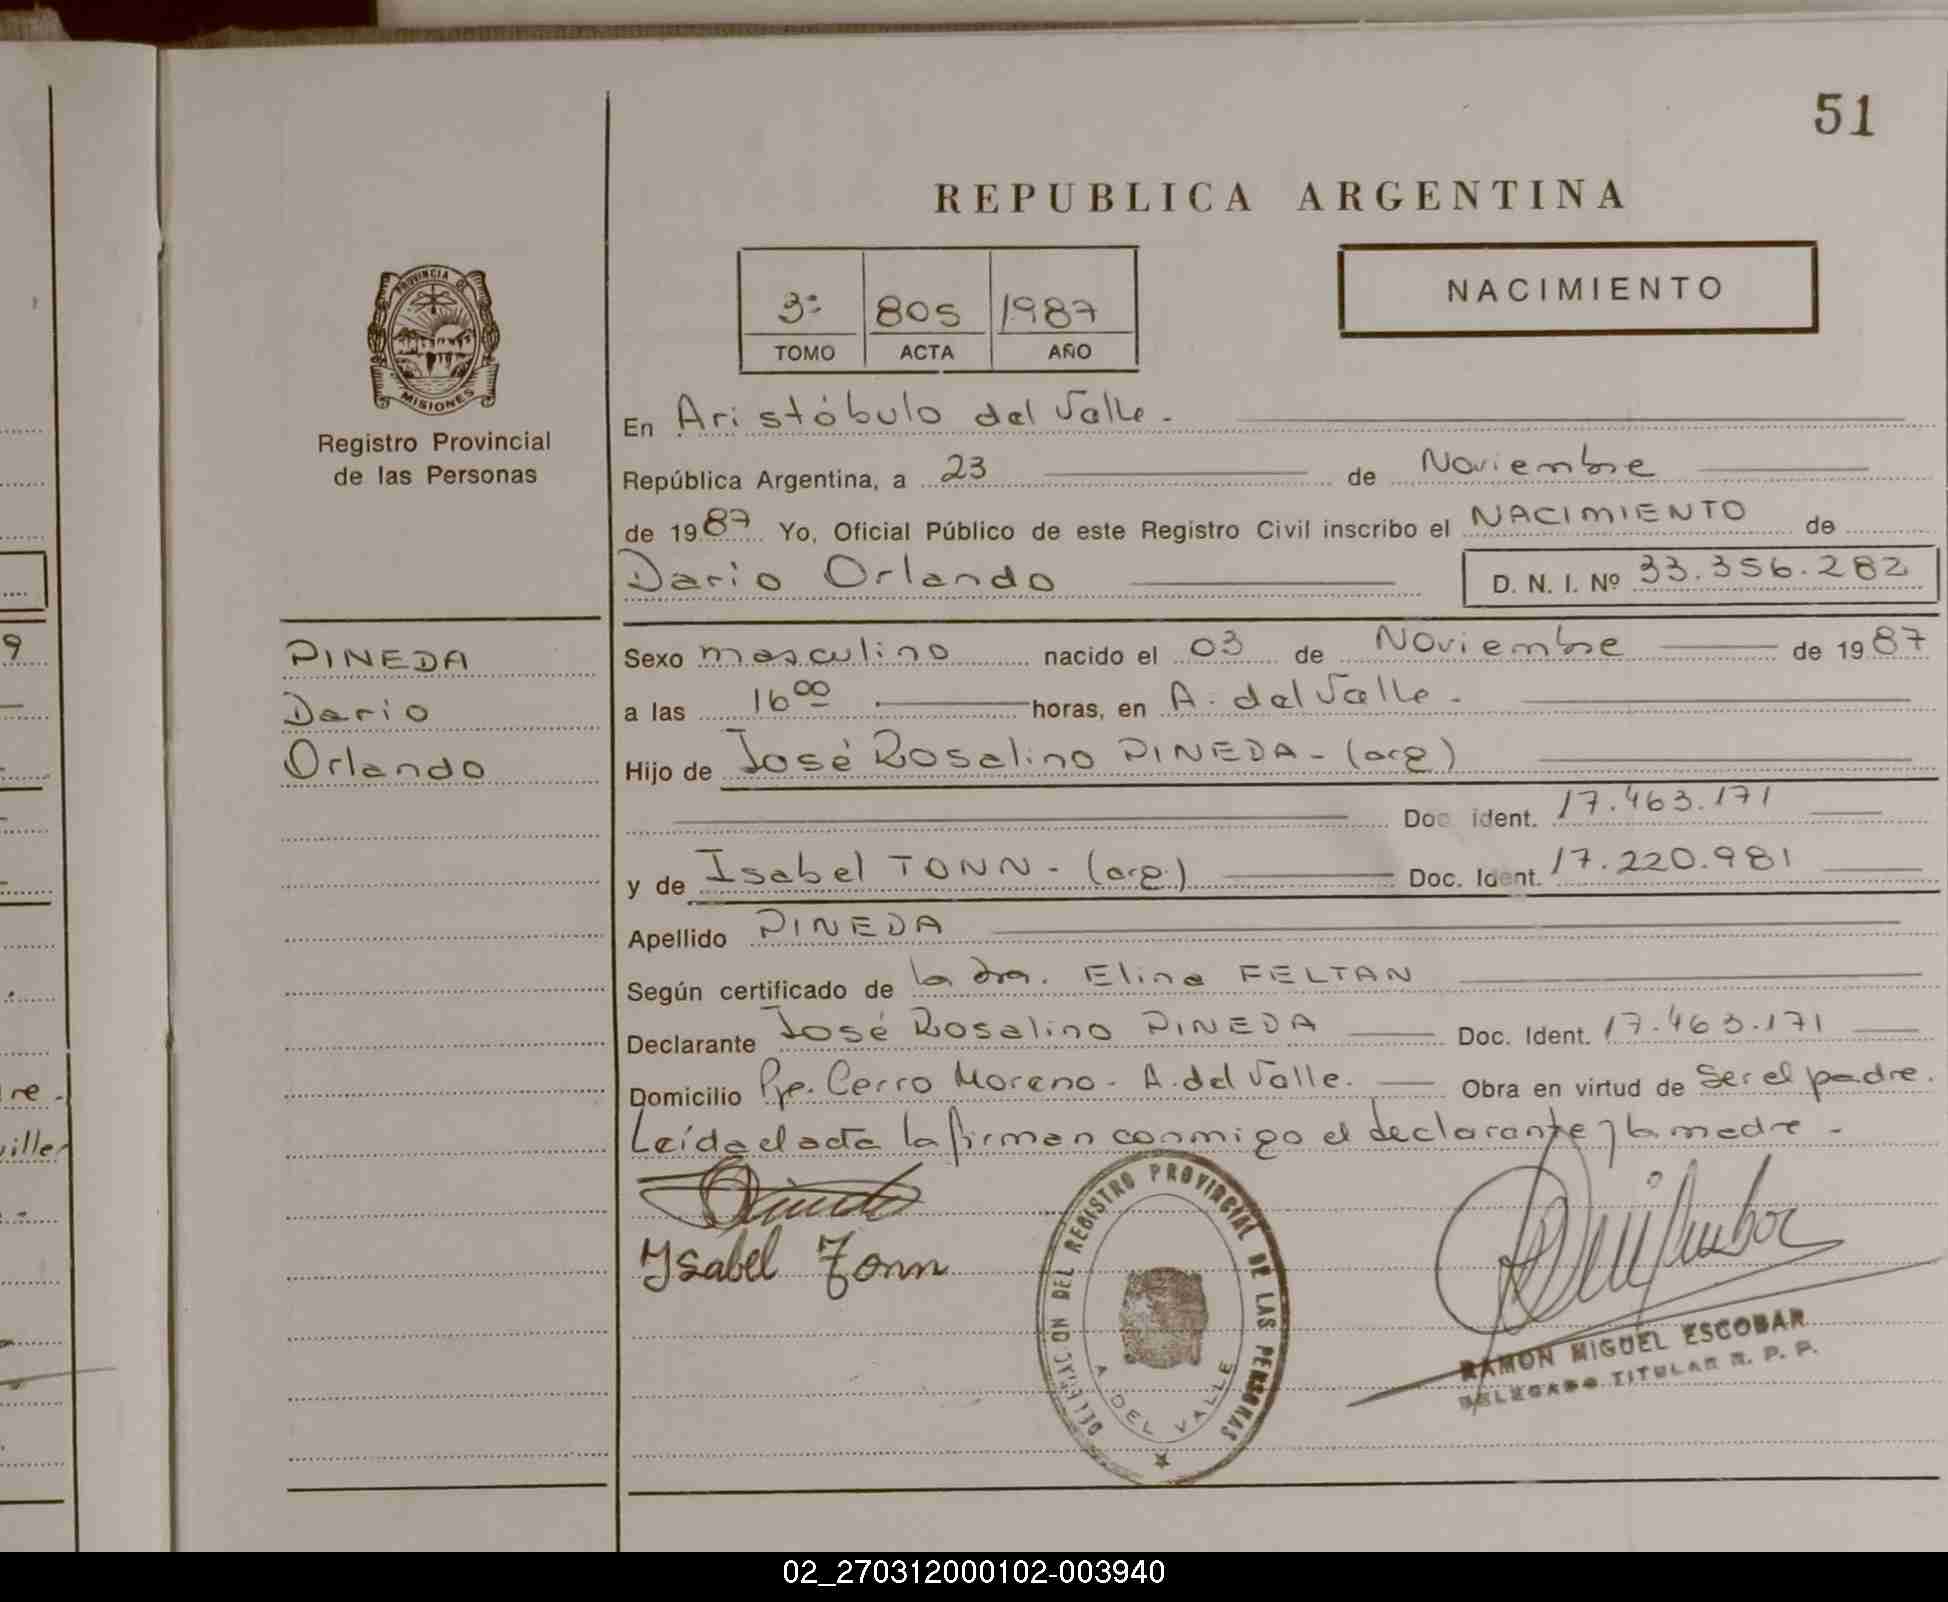 51
REPUBLICA ARGENTINA
NACIMIENTO
3º 805 1987
TOMO ACTA AÑO
PROVINCIA DE
MISIONES
Registro Provincial
de las Personas
En Aristóbulo del Valle.
República Argentina, a 23 de Noviembre
de 1987 Yo, Oficial Público de este Registro Civil inscribo el NACIMIENTO de
Dario Orlando D. N. I. Nº 33.356.282
PINEDA
Dario
Orlando
Sexo masculino nacido el 03 de Noviembre de 1987
a las 16 00 horas, en A. del Valle.
Hijo de José Rosalino PINEDA - (arg)
Doc ident. 17.463.171
y de Isabel TONN - (arg) Doc. Ident. 17.220.981
Apellido PINEDA
Según certificado de la dra. Elina FELTAN
Declarante José Rosalino PINEDA Doc. Ident. 17.463.171
Domicilio Pje. Cerro Moreno - A. del Valle. Obra en virtud de Ser el padre.
Leída el acta la firman conmigo el declarante y la madre -
Ysabel Tonn
DELEGACION DEL REGISTRO PROVINCIAL DE LAS PERSONAS
A DEL VALLE
RAMON MIGUEL ESCOBAR
DELEGADO TITULAR R. P. P.
9
re.
iller
02_270312000102-003940